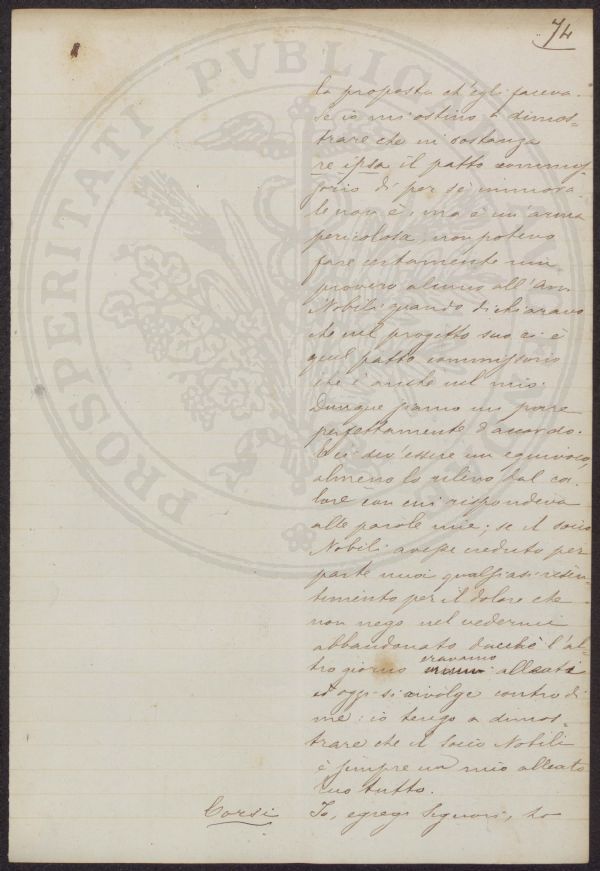 74
la proposta ch'egli faceva.
Se io mi ostino a dimos=
trare che in sostanza
re ipsa il patto commis
sorio di per sè immora
le non è, ma è un'arma
pericolosa, non potevo
fare certamente un
provero alcuno all'Avv.
Nobili quando dichiaravo
che nel progetto suo ci è
quel patto commissorio
che è anche nel mio.
Dunque siamo un pare
perfettamente d'accordo.
E ci dev'essere un equivoco,
almeno lo rilevo dal ca-
lore con cui rispondeva
alle parole mie; se il socio
Nobili avesse creduto per
parte mia qualsiasi risen-
timento per il dolore che
non nego nel vedermi
abbandonato dacchè l'al=
tro giorno eravamo alleati
ed oggi si rivolge contro di
me: io tengo a dimos=
trare che il socio Nobili
è sempre un mio alleato
in tutto.
Corsi Io, egregi Signori, ho
PROSPERITATI PVBLICAE